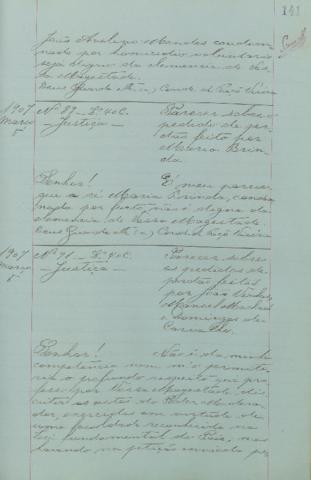 141
João Avelino Mendes condem-
nado por homicidio voluntario
seja digno da clemencia de Vos-
sa Magestade.
Deus Guarde Conde de Paçô Vieira
1907 Nº 89 - Lº 40C. Parecer sobre o
março - Justiça - pedido de per-
5 dão feito por
Maria Brin-
da
Senhor! É meu parecer
que a ré Maria Brinda, condem-
nada por furto, não é digna da
clemencia de Vossa Magestade
Deus Guarde Conde de Paçô Vieira
1907 Nº 91 - Lº 40C. Parecer sobre
março - Justiça - os pedidos de
5 perdão feitos
por João
Manoel
e Domingos de
Carvalho.
Senhor! Não é da minha
competencia nem m'o permitte-
ria o profundo respeito que pro-
fesso por Vossa Magestade, dis-
cutir os actos do Poder Modera-
dor, exercidos em virtude de
uma faculdade reconhecida na
lei fundamental do Paiz, mas
na petição enviada por